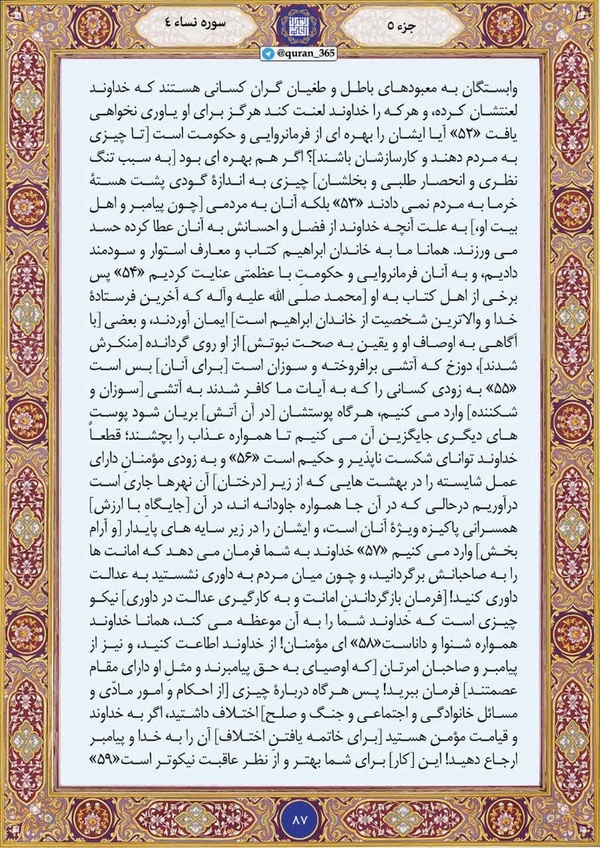 جزء ۵
سوره نساء ۴
@quran_365
وابستگان به معبودهای باطل و طغیان گران کسانی هستند که خداوند
لعنتشان کرده، و هرکه را خداوند لعنت کند هرگز برای او یاوری نخواهی
یافت «۵۲» آیا ایشان را بهره ای از فرمانروایی و حکومت است [تا چیزی
به مردم دهند و کارسازشان باشند]؟ اگر هم بهره ای بود [به سبب تنگ
نظری و انحصار طلبی و بخلشان] چیزی به اندازهٔ گودی پشت هستهٔ
خرما به مردم نمی دادند «۵۳» بلکه آنان به مردمی [چون پیامبر و اهل
بیت او،] به علت آنچه خداوند از فضل و احسانش به آنان عطا کرده حسد
می ورزند. همانا ما به خاندان ابراهیم کتاب و معارف استوار و سودمند
دادیم، و به آنان فرمانروایی و حکومتِ با عظمتی عنایت کردیم «۵۴» پس
برخی از اهل کتاب به او [محمد صلی الله علیه وآله که آخرین فرستادهٔ
خدا و والاترین شخصیت از خاندان ابراهیم است] ایمان آوردند، و بعضی [با
آگاهی به اوصاف او و یقین به صحت نبوتش] از او روی گردانده [منکرش
شدند]، دوزخ که آتشی برافروخته و سوزان است [برای آنان] بس است
«۵۵» به زودی کسانی را که به آیات ما کافر شدند به آتشی [سوزان و
شکننده] وارد می کنیم، هرگاه پوستشان [در آن آتش] بریان شود پوست
های دیگری جایگزین آن می کنیم تا همواره عذاب را بچشند؛ قطعاً
خداوند توانای شکست ناپذیر و حکیم است «۵۶» و به زودی مؤمنان دارای
عمل شایسته را در بهشت هایی که از زیر [درختان] آن نهرها جاری است
درآوریم درحالی که در آن جا همواره جاودانه اند، در آن [جایگاه با ارزش]
همسرانی پاکیزه ویژهٔ آنان است، و ایشان را در زیر سایه های پایدار [و آرام
بخش] وارد می کنیم «۵۷» خداوند به شما فرمان می دهد که امانت ها
را به صاحبانش برگردانید، و چون میان مردم به داوری نشستید به عدالت
داوری کنید! [فرمانِ بازگرداندنِ امانت و به کارگیری عدالت در داوری] نیکو
چیزی است که خداوند شما را به آن موعظه می کند، همانا خداوند
همواره شنوا و داناست«۵۸» ای مؤمنان! از خداوند اطاعت کنید، و نیز از
پیامبر و صاحبان امرتان [که اوصیای به حق پیامبرند و مثلِ او دارای مقام
عصمتند] فرمان ببرید! پس هرگاه دربارهٔ چیزی [از احکام و امور مادّی و
مسائل خانوادگی و اجتماعی و جنگ و صلح] اختلاف داشتید، اگر به خداوند
و قیامت مؤمن هستید [برای خاتمه یافتنِ اختلاف] آن را به خدا و پیامبر
ارجاع دهید! این [کار] برای شما بهتر و از نظر عاقبت نیکوتر است«۵۹»
۸۷